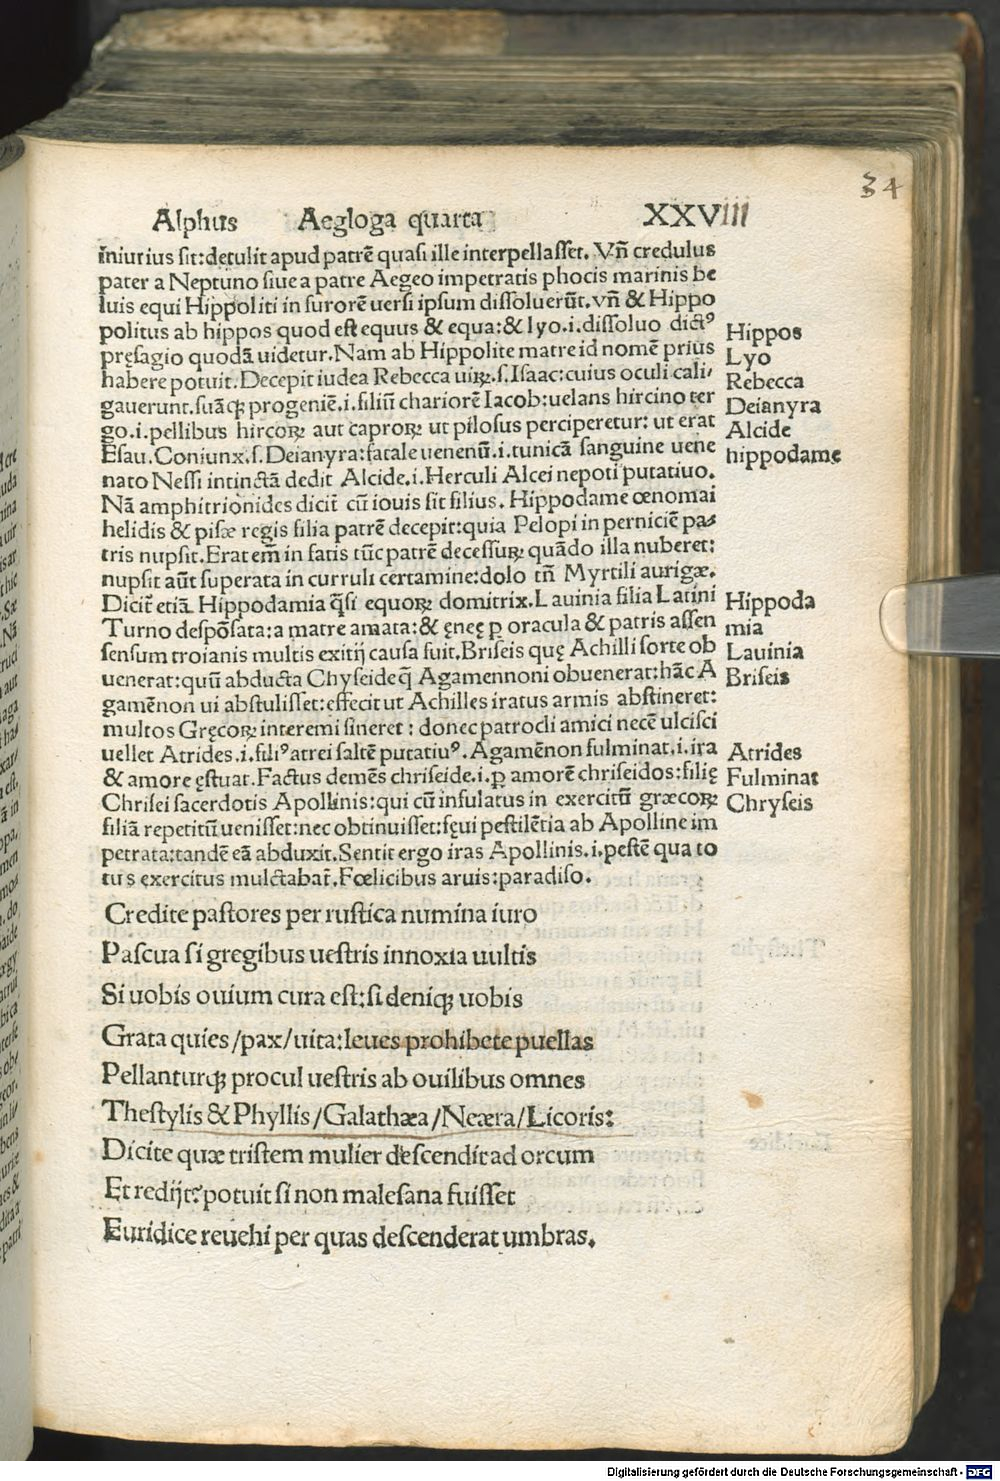 34
Alphus Aegloga quarta XXVIII
iniurius sit:detulit apud patrē quasi ille interpellasset. Vñ credulus
pater a Neptuno siue a patre Aegeo impetratis phocis marinis be
luis equi Hippoliti in furorē uersi ipsum dissoluerūt.vñ & Hippo
politus ab hippos quod est equus & equa:& lyo.i.dissoluo dictꝰ
pręsagio quodā uidetur.Nam ab Hippolite matre id nomē prius
habere potuit.Decepit iudea Rebecca uiꝝ.s.Isaac:cuius oculi cali/
gauerunt.suāqꝫ progeniē.i.filiū chariorē Iacob:uelans hircino ter
go.i.pellibus hircoꝝ aut caproꝝ ut pilosus perciperetur: ut erat
Esau.Coniunx.s.Deianyra:fatale uenenū.i.tunicā sanguine uene
nato Nessi intinctā dedit Alcide.i.Herculi Alcei nepoti putatiuo.
Nā amphitrionides dicit̄ cū iouis sit filius. Hippodame œnomai
helidis & pisæ regis filia patrē decepit:quia Pelopi in perniciē pa/
tris nupsit.Erat em̄ in fatis tūc patrē decessuꝝ quādo illa nuberet:
nupsit aūt superata in curruli certamine:dolo tñ Myrtili aurigæ.
Dicit̄ etiā Hippodamia q̄si equoꝝ domitrix.Lauinia filia Latini
Turno despōsata:a matre amata:& ęnęę ꝑ oracula & patris assen
sensum troianis multis exitij causa fuit.Briseis quę Achilli sorte ob
uenerat:quū abducta Chyseide q̄ Agamennoni obuenerat:hāc A
gamēnon ui abstulisset:effecit ut Achilles iratus armis abstineret:
multos Gręcoꝝ interemi sineret : donec patrocli amici necē ulcisci
uellet Atrides.i.filiꝰ atrei saltē putatiuꝰ. Agamēnon fulminat.i.ira
& amore ęstuat.Factus demēs chriseide.i.ꝑ amorē chriseidos:filię
Chrisei sacerdotis Apollinis:qui cū insulatus in exercitū græcoꝝ
filiā repetitū uenisset:nec obtinuisset:sęui pestilētia ab Apolline im
petrata:tandē eā abduxit.Sentit ergo iras Apollinis.i.pestē qua to
tus exercitus mulctabat̄.Fœlicibus aruis:paradiso.
Hippos
Lyo
Rebecca
Deianyra
Alcide
hippodame
Hippoda
mia
Lauinia
Briseis
Atrides
Fulminat
Chryseis
Credite pastores per rustica numina iuro
Pascua si gregibus uestris innoxia uultis
Si uobis ouium cura est:si deniqꝫ uobis
Grata quies/pax/uita:leues prohibete puellas
Pellanturqꝫ procul uestris ab ouilibus omnes
Thestylis & Phyllis/Galathæa/Neæra/Licoris:
Dicite quæ tristem mulier descendit ad orcum
Et redijt?potuit si non malesana fuisset
Euridice reuehi per quas descenderat umbras.
Digitalisierung gefördert durch die Deutsche Forschungsgemeinschaft - DFG